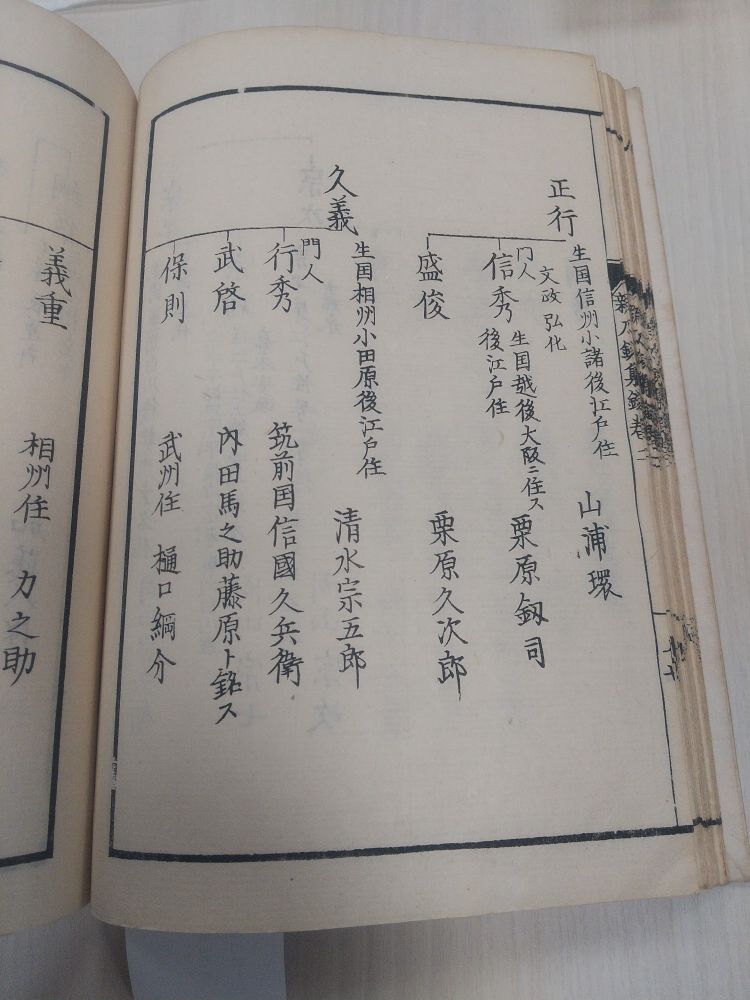 正行 生国信州小諸後江戸住 山浦環
文政 弘化
門人
信秀 生国越後大阪ニ住ス 栗原釼司
後江戸住
盛俊 栗原久次郎
久義 生国相州小田原後江戸住 清水宗五郎
門人
行秀 筑前国信國久兵衛
武啓 内田馬之助藤原ト銘ス
保則 武州住 樋口綱介
義重 相州住 力之助